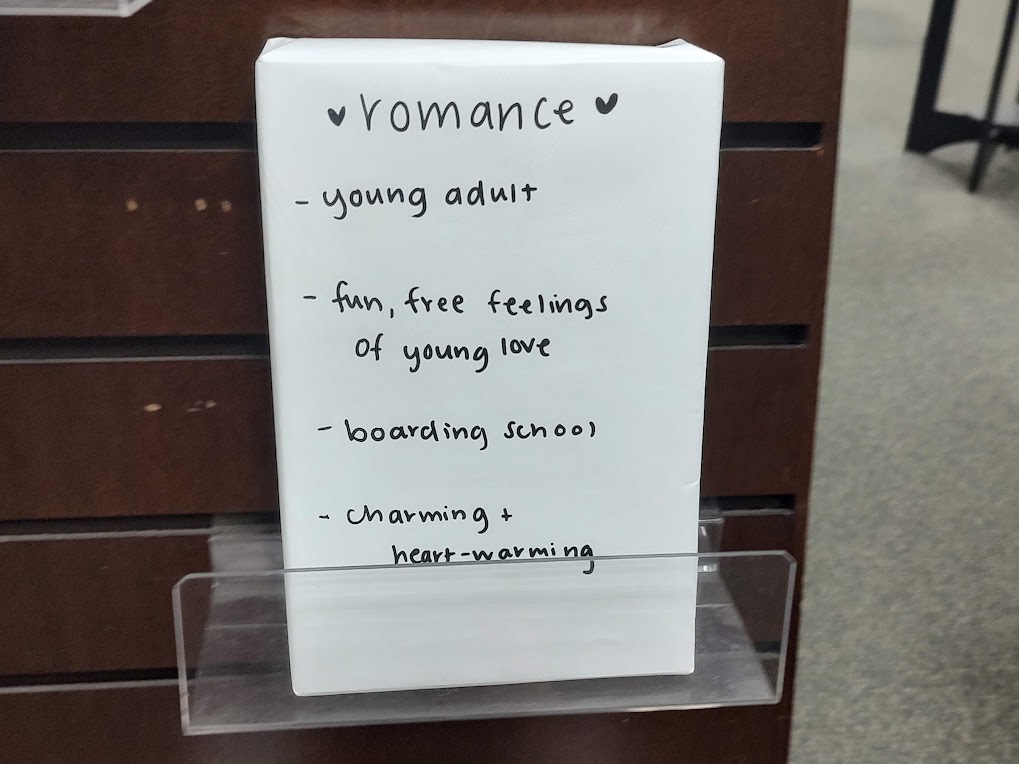 ♥ romance ♥
- young adult
- fun, free feelings
of young love
- boarding school
- charming +
heart-warming